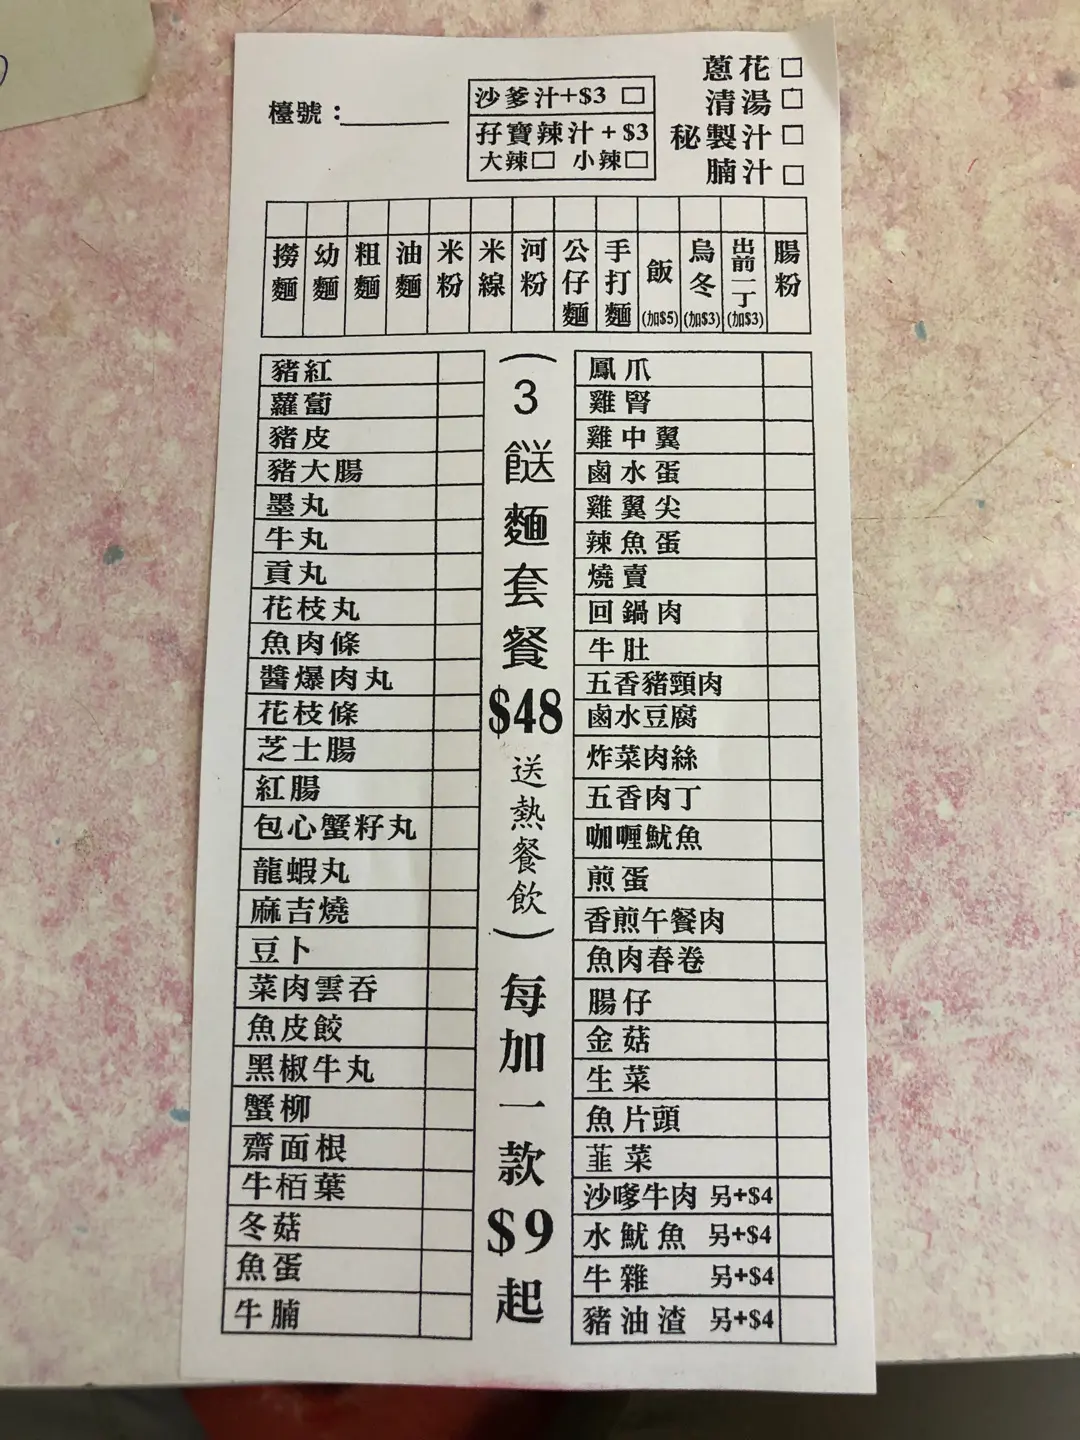 檯號：
沙爹汁+$3 □
孖寶辣汁 + $3
大辣□ 小辣□
蔥花 □
清湯 □
秘製汁 □
腩汁 □
撈麵
幼麵
粗麵
油麵
米粉
米線
河粉
公仔麵
手打麵
飯(加$5)
烏冬(加$3)
出前一丁(加$3)
腸粉
豬紅
蘿蔔
豬皮
豬大腸
墨丸
牛丸
貢丸
花枝丸
魚肉條
醬爆肉丸
花枝條
芝士腸
紅腸
包心蟹籽丸
龍蝦丸
麻吉燒
豆卜
菜肉雲吞
魚皮餃
黑椒牛丸
蟹柳
齋面根
牛栢葉
冬菇
魚蛋
牛腩
(3餸麵套餐$48送熱餐飲)每加一款$9起
鳳爪
雞腎
雞中翼
鹵水蛋
雞翼尖
辣魚蛋
燒賣
回鍋肉
牛肚
五香豬頸肉
鹵水豆腐
炸菜肉絲
五香肉丁
咖喱魷魚
煎蛋
香煎午餐肉
魚肉春卷
腸仔
金菇
生菜
魚片頭
韮菜
沙嗲牛肉 另+$4
水魷魚 另+$4
牛雜 另+$4
豬油渣 另+$4